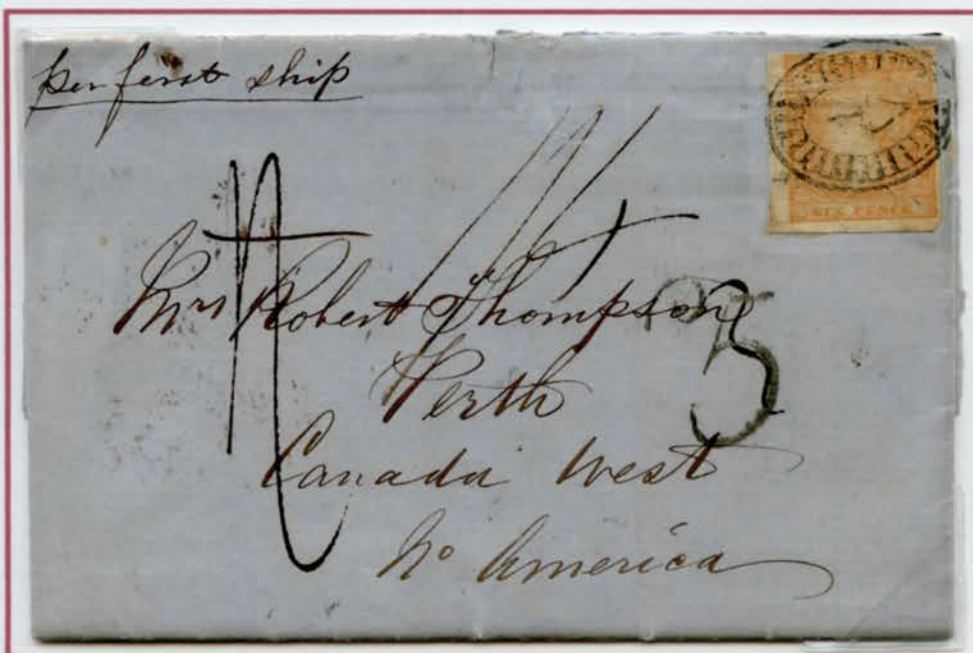 per first ship
SIX PENCE
Mrs Robert Thompson
3
Perth
Canada West
No America